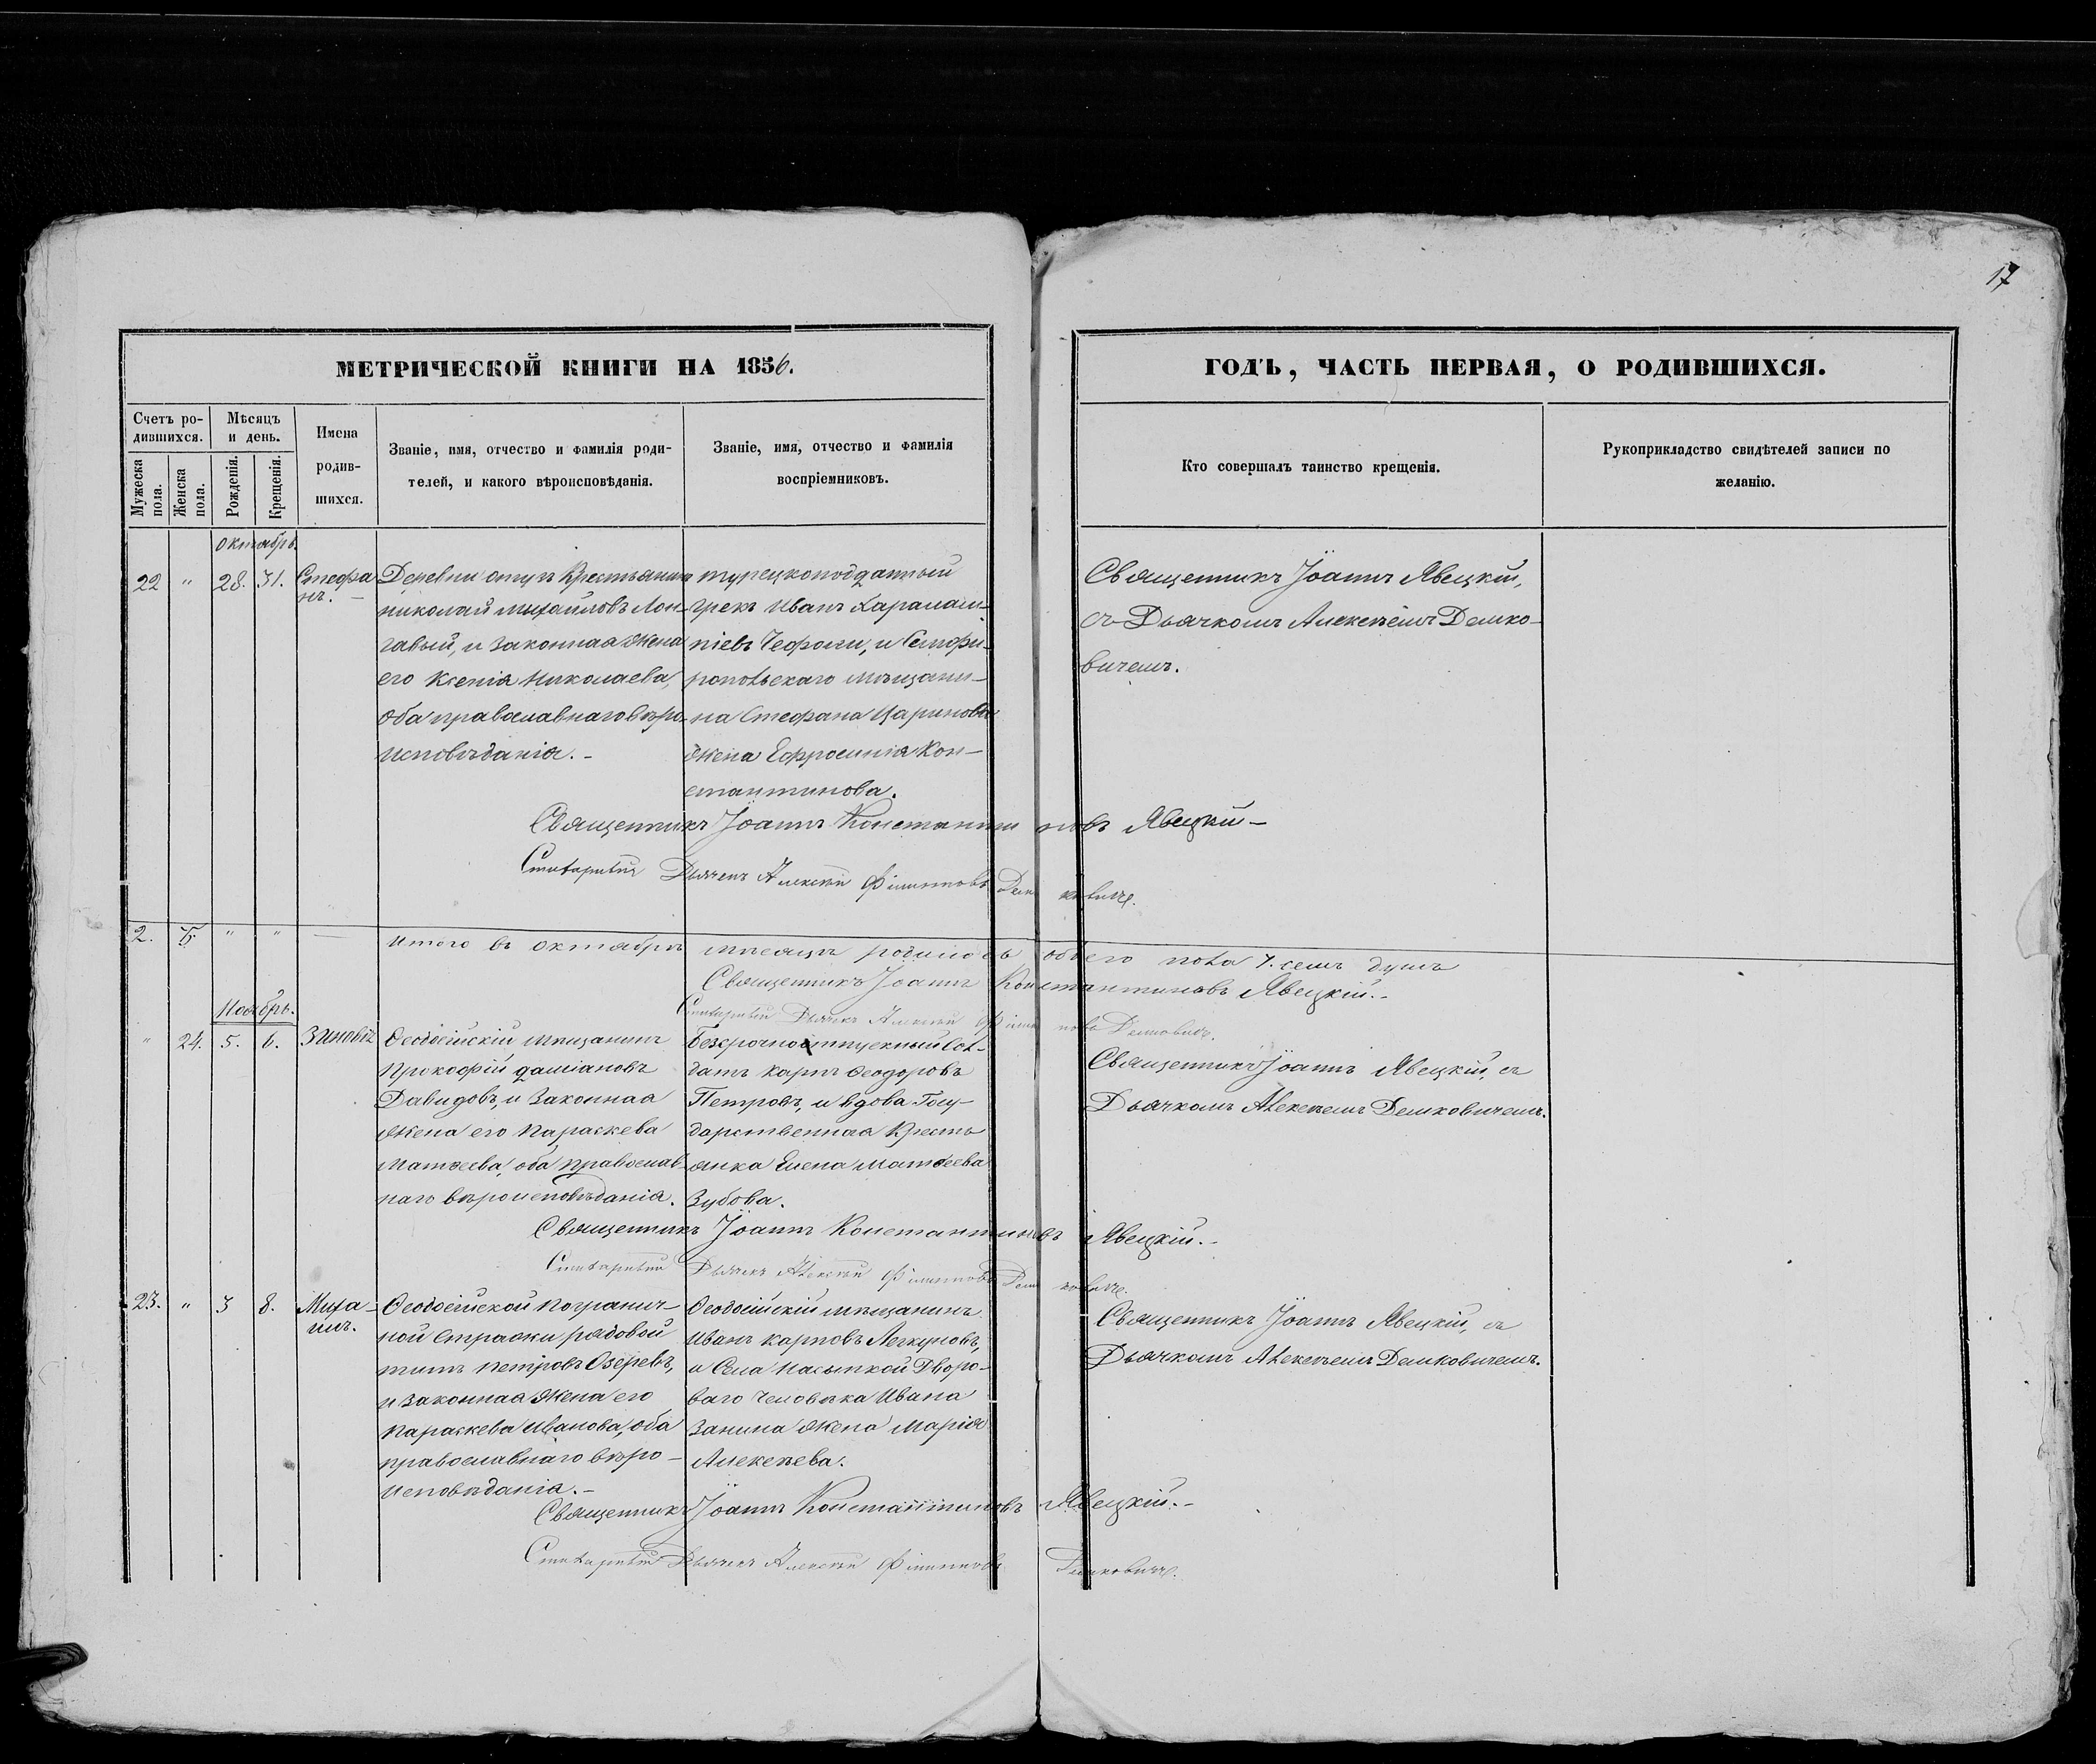 17
МЕТРИЧЕСКОЙ КНИГИ НА 1856.
ГОДЪ, ЧАСТЬ ПЕРВАЯ, О РОДИВШИХСЯ.
Счетъ ро-
дившихся.
Мужеска пола.
Женска пола.
Мѣсяцъ
и день.
Рожденія.
Крещенія.
Имена
родив-
шихся.
Званіе, имя, отчество и фамилія роди-
телей, и какого вѣроисповѣданія.
Званіе, имя, отчество и фамилія
воспріемниковъ.
Кто совершалъ таинство крещенія.
Рукоприкладство свидѣтелей записи по
желанію.
Октябрь.
22 " 28. 31. Стефа
нъ. —
Деревни Крестьянинъ
Николай Михайловъ Лон-
гавый, и законная жена
его Ксенія Николаева,
оба православнаго вѣро-
исповѣданія. –
турецкоподданный
грекъ Иванъ Харалам-
піевъ и Симфи-
ропольскаго мѣщани-
на Стефана Царинова
жена Ефросинія Кон-
стантинова.
Священникъ Іоаннъ Явецкій,
съ Дьячкомъ Алексѣемъ Демко-
вичемъ.
Священникъ Іоаннъ Константиновъ Явецкій –
Стихарный Дьячекъ Алексѣй Филиповъ Демковичъ.
2. 5. " " —
Итого въ октябрѣ мѣсяцѣ родилось обоего пола 7. семь душъ
Священникъ Іоаннъ Константиновъ Явецкій. –
Стихарный Дьячекъ Алексѣй Филиповъ Демковичъ.
Ноябрь.
" 24. 5. 6. Зиновія
Ѳеодосійскій мѣщанинъ
Прокофій Даміановъ
Давидовъ, и законная
жена его Параскева
Матѳеева, оба православ-
наго вѣроисповѣданія.
Безсрочноотпускный Сол-
датъ Карпъ Ѳеодоровъ
Петровъ, и вдова Госу-
дарственная Кресть
янка Елена Матѳеева
Зубова.
Священникъ Іоаннъ Явецкій, съ
Дьячкомъ Алексѣемъ Демковичемъ.
Священникъ Іоаннъ Константиновъ Явецкій. –
Стихарный Дьячекъ Алексѣй Филиповъ Демковичъ.
23. " 3 8. Миха-
илъ.
Ѳеодосійской погранич-
ной Стражи рядовой
Титъ Петровъ Озеревъ,
и законная жена его
Параскева Иванова, оба
православнаго вѣро –
исповѣданія. –
Ѳеодосійскій мѣщанинъ
Иванъ Карповъ Легкуновъ,
и Села Насыпкой Дворо-
ваго человѣка Ивана
Занина жена Марія
Алексѣева.
Священникъ Іоаннъ Явецкій, съ
Дьячкомъ Алексѣемъ Демковичемъ.
Священникъ Іоаннъ Константиновъ Явецкій. –
Стихарный Дьячекъ Алексѣй Филиповъ Демковичъ.